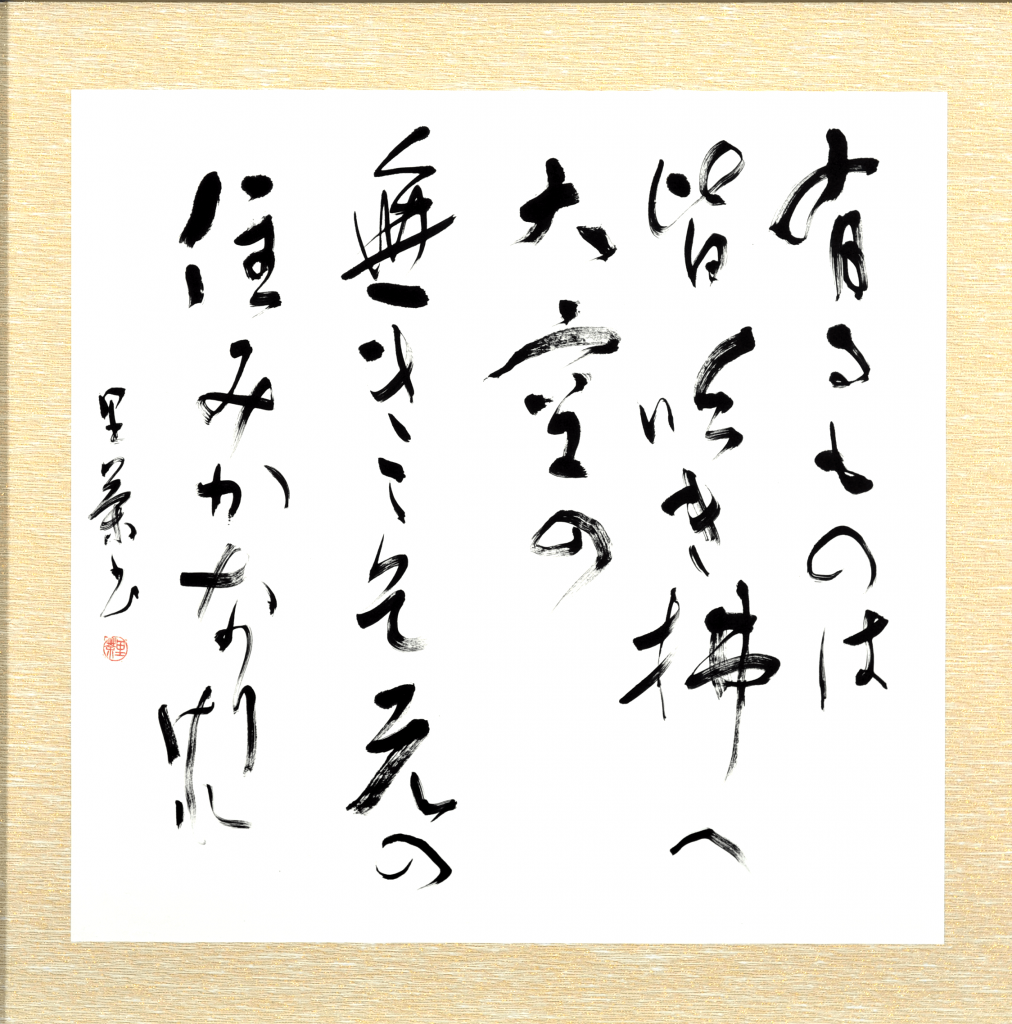 有るものは
皆吹き拂へ
大空の
無きこそ元の
住みかなりけれ
里葉书